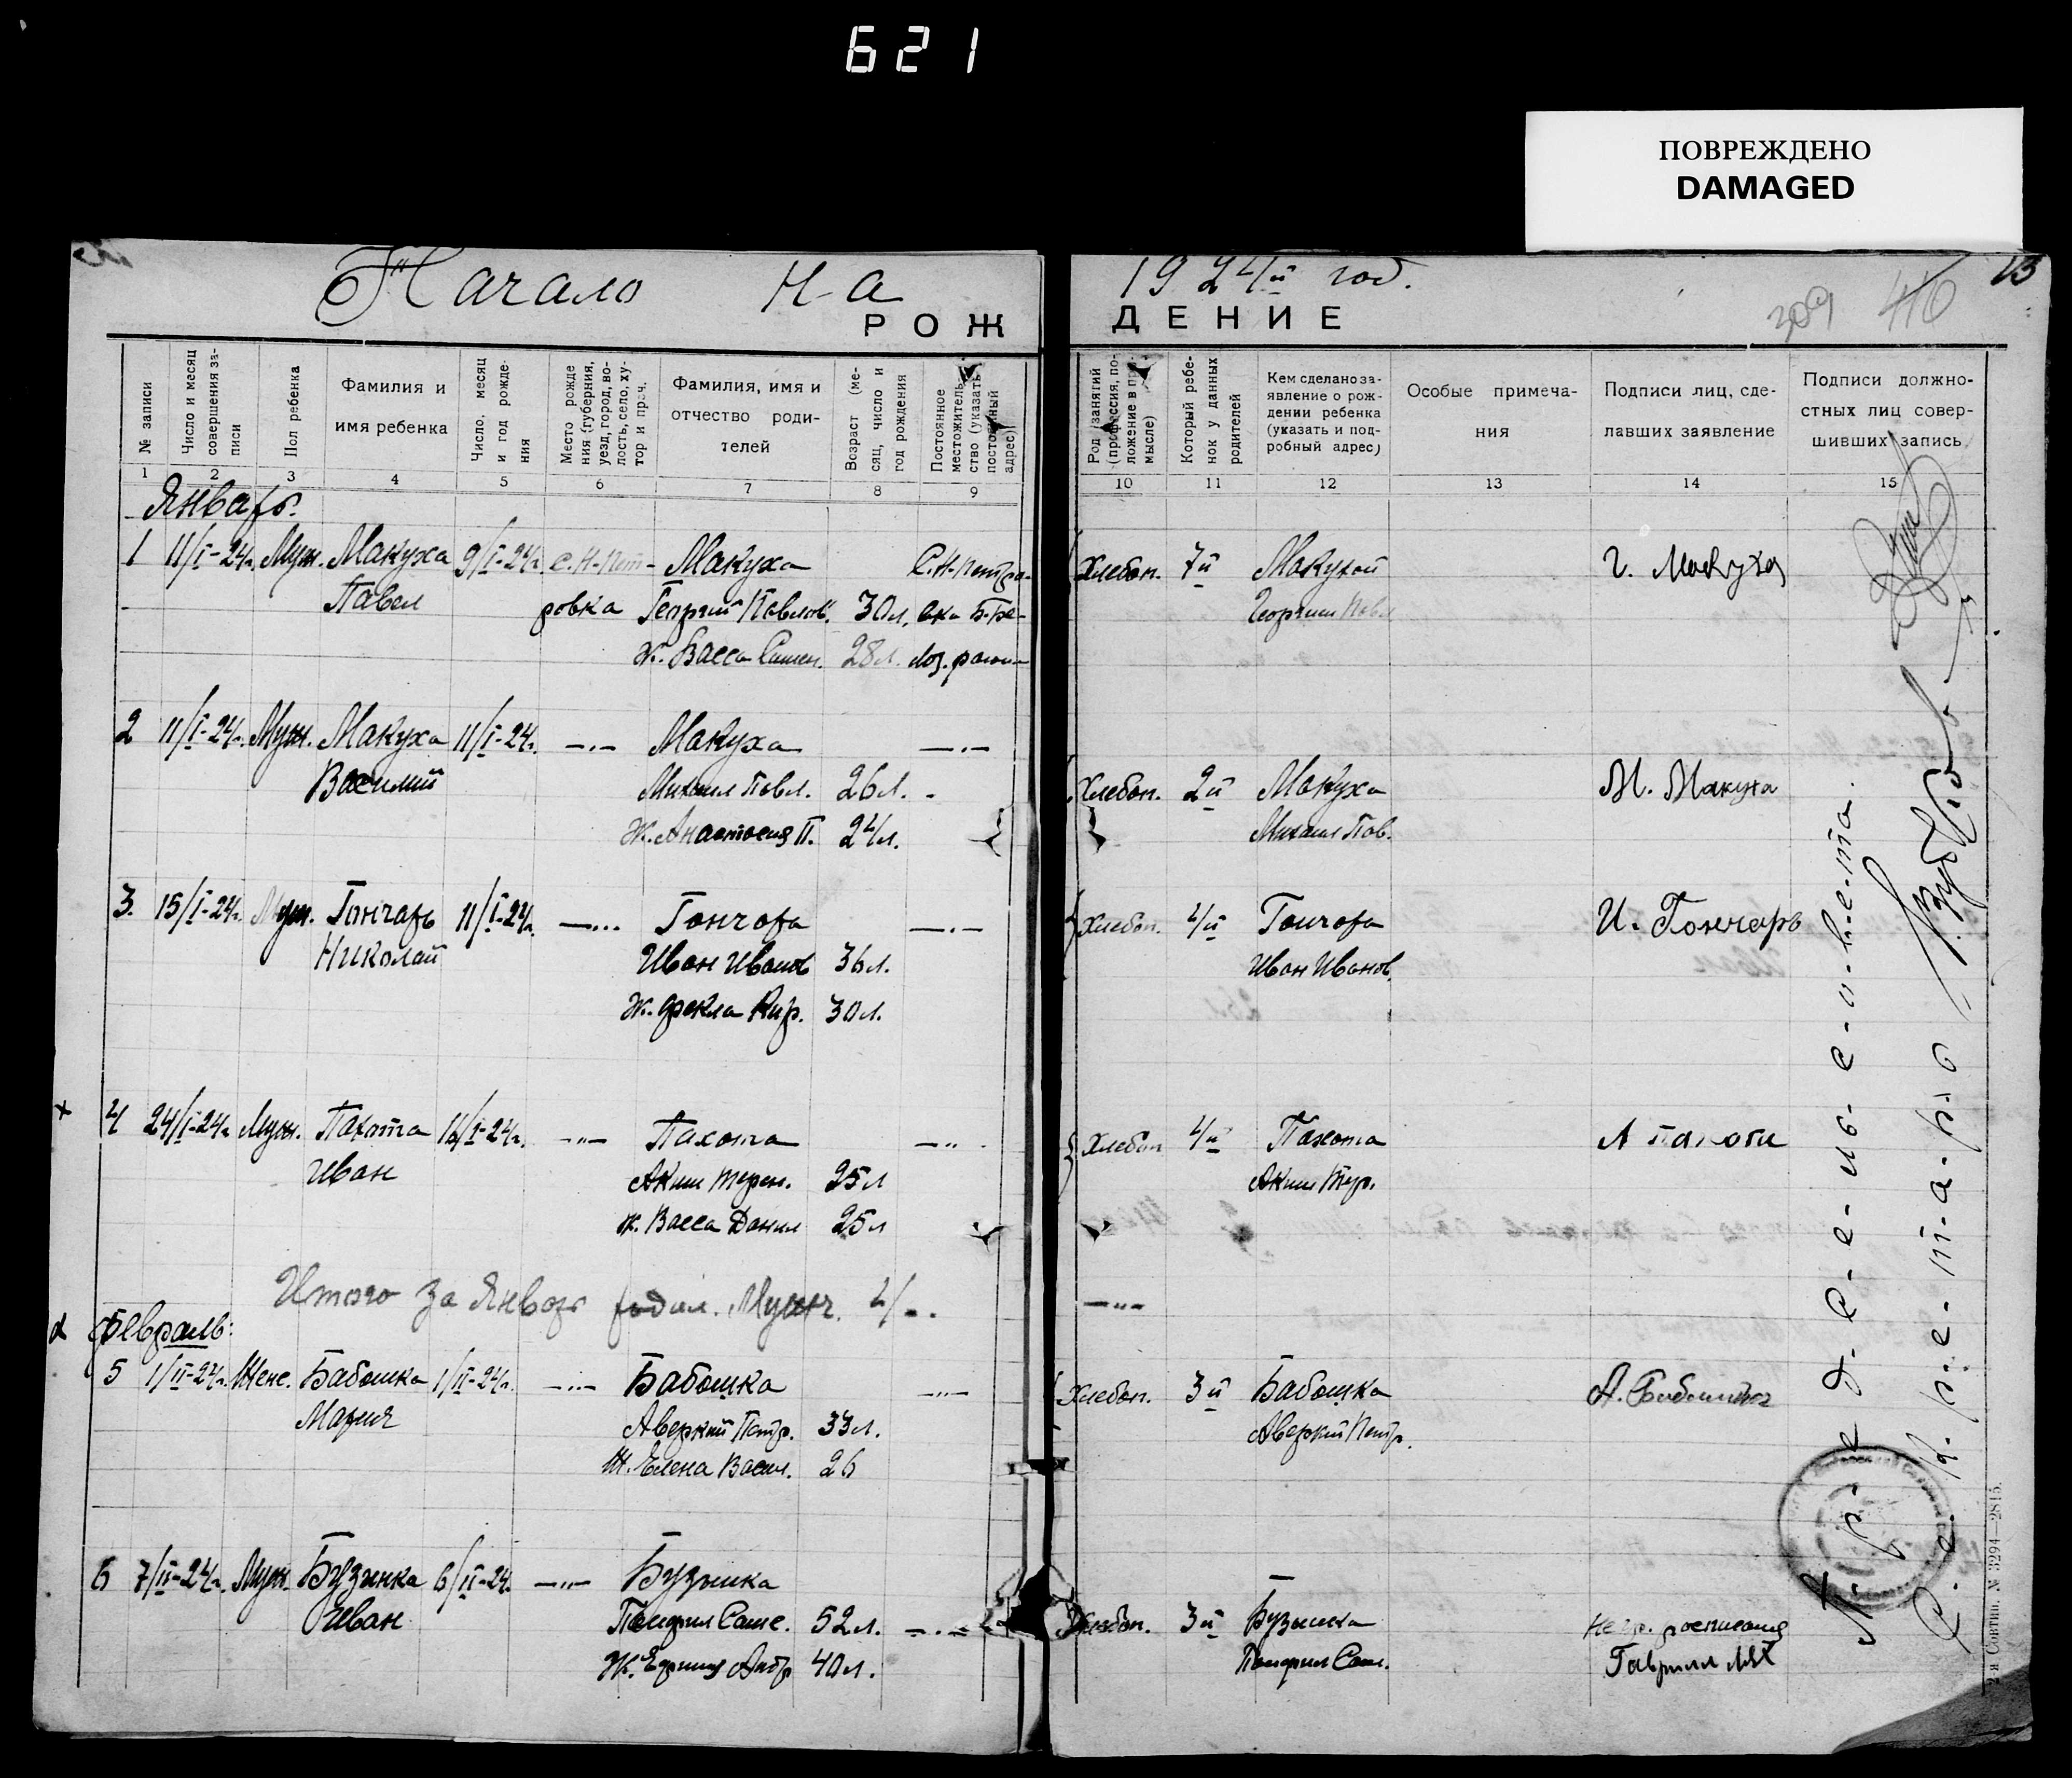 621
ПОВРЕЖДЕНО
DAMAGED
Начало на 1924й год.
13
309
416
РОЖДЕНИЕ
№ записи
Число и месяц совершения записи
Пол ребенка
Фамилия и имя ребенка
Число, месяц и год рождения
Место рождения (губерния, уезд, город, волость, село, хутор и проч.
Фамилия, имя и отчество родителей
Возраст (месяц, число и год рождения
Постоянное местожительство (указать адрес)
Род занятий (профессия, положение в промысле)
Который ребенок у данных родителей
Кем сделано заявление о рождении ребенка (указать и подробный адрес)
Особые примечания
Подписи лиц, сделавших заявление
Подписи должностных лиц совершивших запись
1 2 3 4 5 6 7 8 9 10 11 12 13 14 15
Январь.
1 11/I-24г. Муж. Макуха 9/I-24г. с. Н-Пет- Макуха С. Н-Петро- Хлебоп. 7й Макухой Г. Макуха
Павел ровка Георгий Павлов. 30л. вка Георгием Павл
Ж. Васса Семен. 28л.
2 11/I-24г. Муж. Макуха 11/I-24г. —„— Макуха —„— Хлебоп. 2й Макуха М. Макуха
Василий Михаил Павл. 26л. Михаил Пав.
Ж. Анастасия П. 24л.
3. 15/I-24г. Муж. Гончарь 11/I-24г. —„— Гончара —„— Хлебоп. 4й Гончара И. Гончарь
Николай Иван Иванов 36л. Иван Иванов.
Ж. Фекла Кир. 30л.
4 24/I-24г. Муж. Пахота 16/I-24г. —„— Пахота —„— Хлебоп 4й Пахота А Пахота
Иван Аким Терен. 25л Аким Тер.
ж. Васса Данил 25л
Итого за Январь родил. Мужч. 4 —„—
Февраль:
5 1/II-24г. Женс. Бабошка 1/II-24г. —„— Бабошка —„— Хлебоп. 3й Бабошка А. Бабошка
Мария Аверкий Петр. 33л. Аверкий Петр.
Ж. Елена Васил. 26
6 7/II-24г. Муж. Бузинка 6/II-24. —„— Бузинка Хлебоп. 3й Бузинка
Иван 52л. —„—
Ж. 40л. Гаврилл
Пред сельсовета.
Секретарь
2-я Совтип. № 3294—2815.